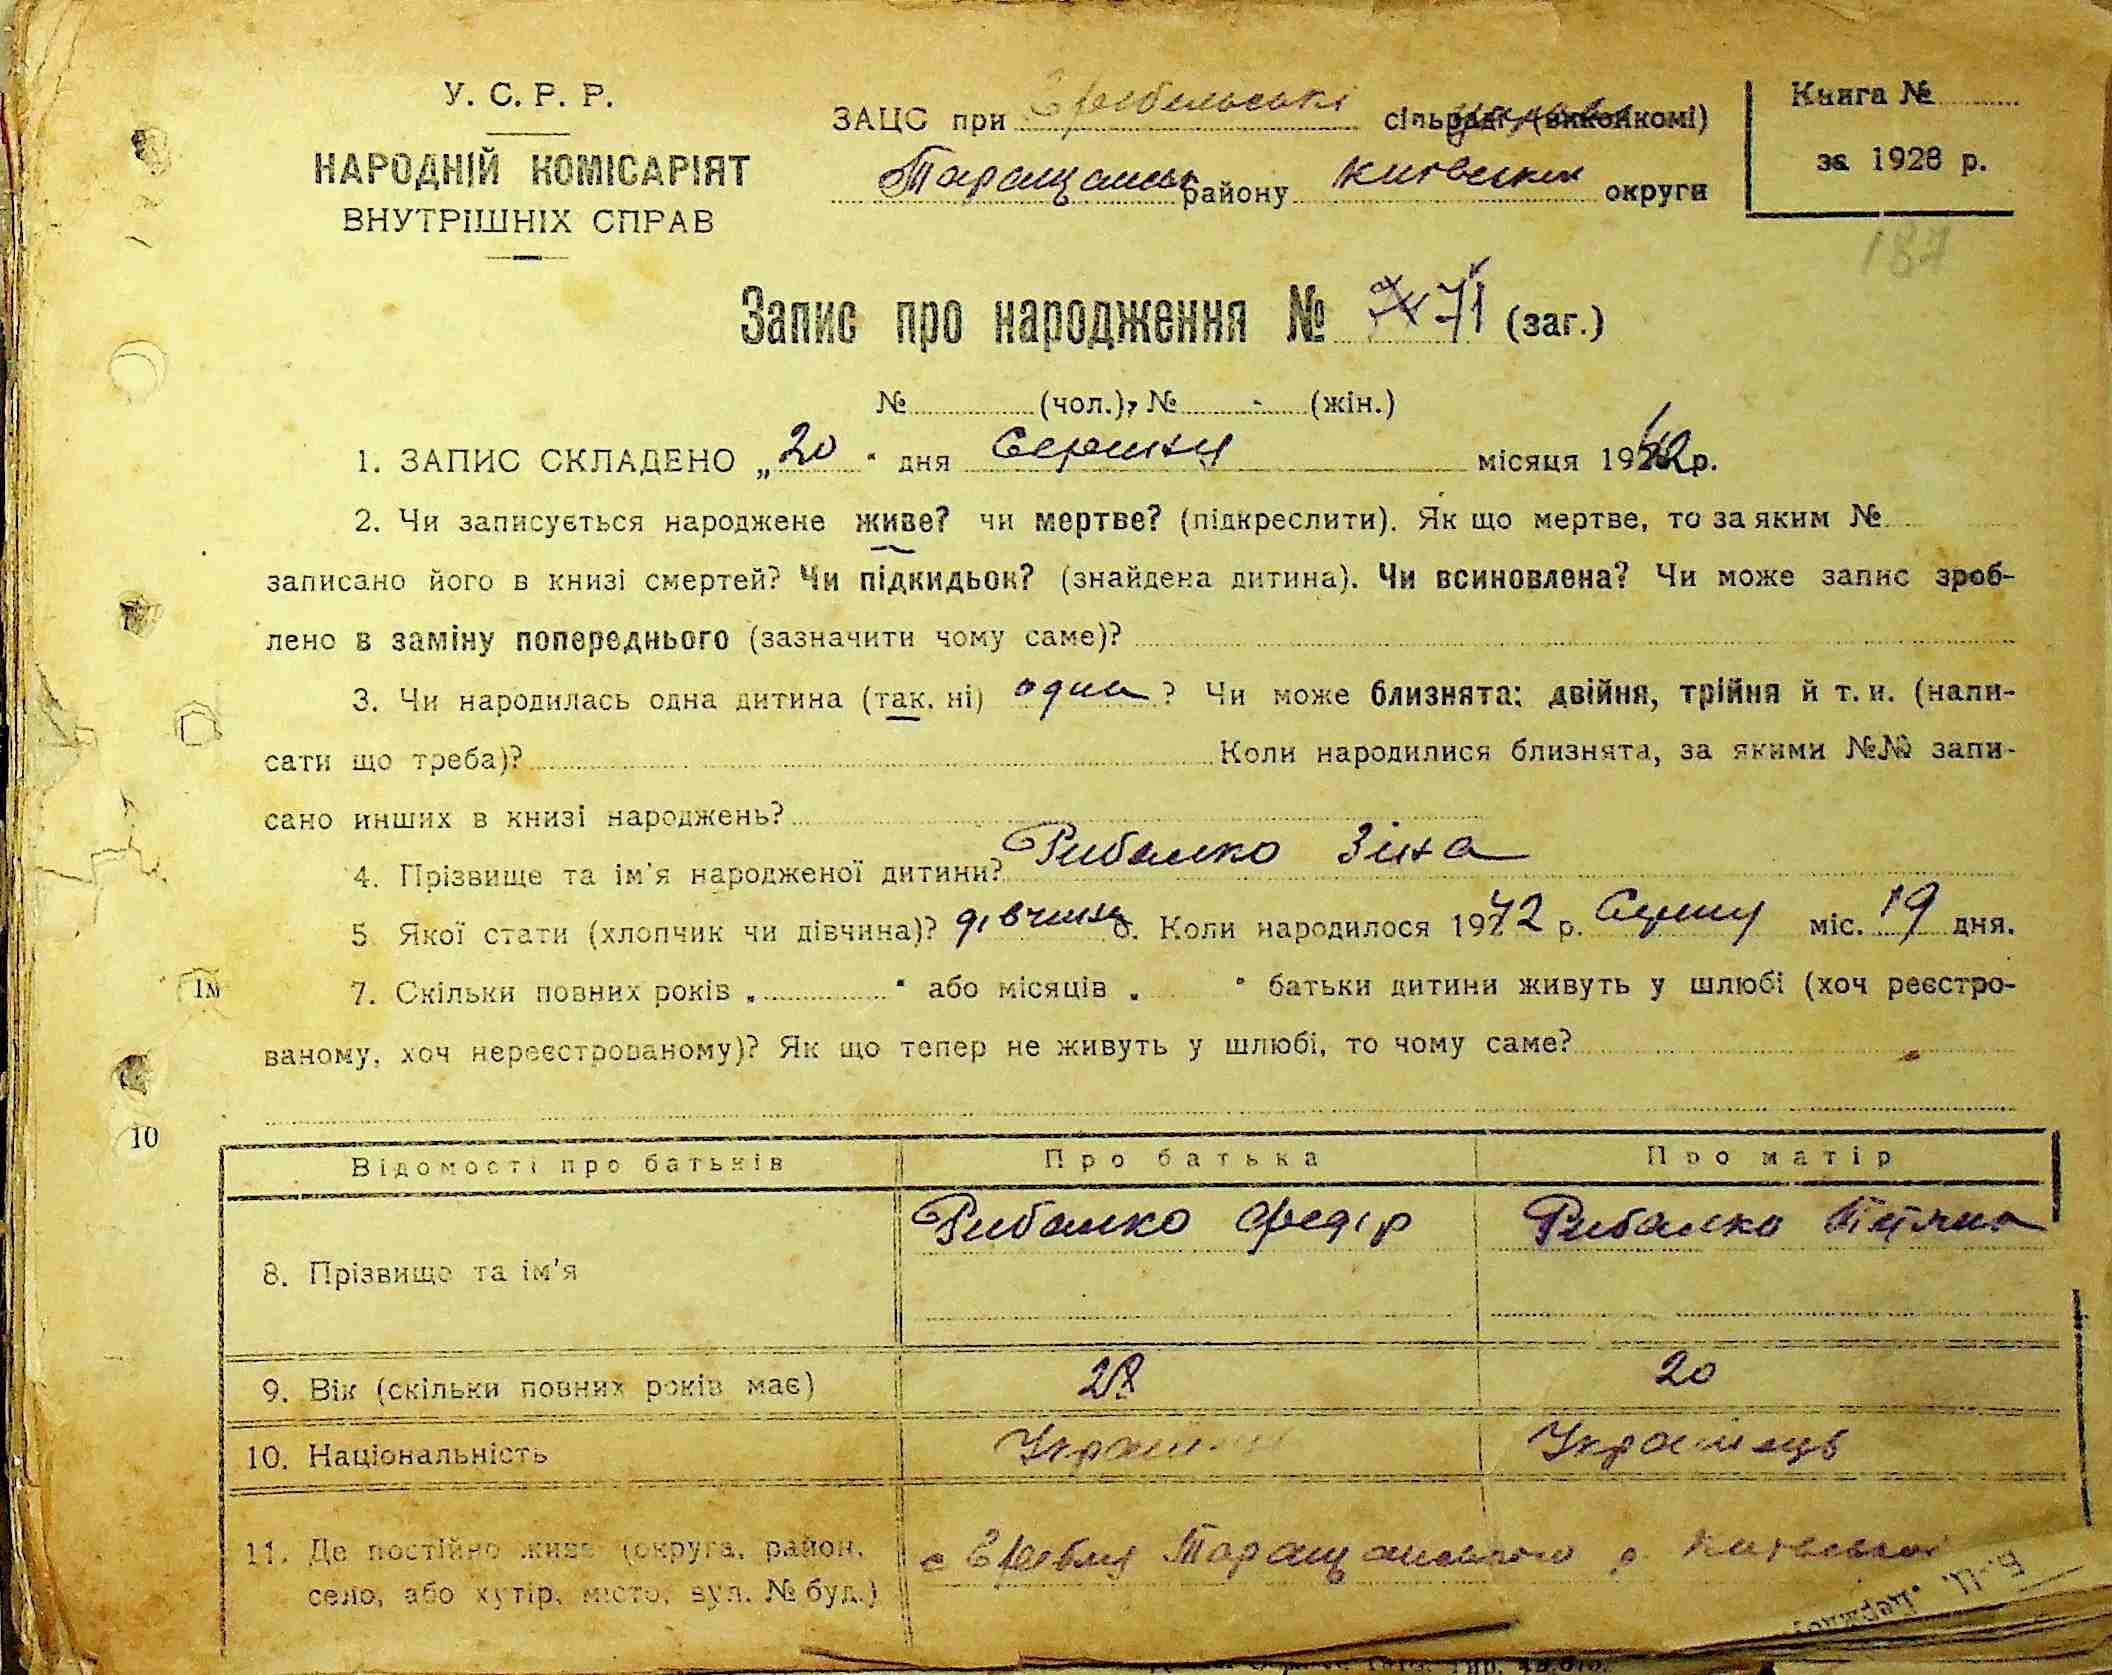 У. С. Р. Р.
НАРОДНІЙ КОМІСАРІЯТ
ВНУТРІШНІХ СПРАВ
ЗАЦС при сільраді (виконкомі)
Таращанськ району Київської округи
Книга №
за 1928 р.
187
Запис про народження № 71 (заг.)
№ (чол.), № - (жін.)
1. ЗАПИС СКЛАДЕНО „20" дня Серпня місяця 1942 р.
2. Чи записується народжене живе? чи мертве? (підкреслити). Як що мертве, то за яким №
записано його в книзі смертей? Чи підкидьок? (знайдена дитина). Чи всиновлена? Чи може запис зроб-
лено в заміну попереднього (зазначити чому саме)?
3. Чи народилась одна дитина (так, ні) одна? Чи може близнята: двійня, трійня й т. и. (напи-
сати що треба)? Коли народилися близнята, за якими №№ запи-
сано инших в книзі народжень?
4. Прізвище та ім'я народженої дитини? Рибалко Зіна
5 Якої стати (хлопчик чи дівчина)? дівчина 6. Коли народилося 1942 р. Серпня міс. 19 дня.
Ім
7. Скільки повних років „ " або місяців „ " батьки дитини живуть у шлюбі (хоч реєстро-
ваному, хоч нереєстрованому)? Як що тепер не живуть у шлюбі, то чому саме?
10
Відомості про батьків Про батька Про матір
8. Прізвище та ім'я Рибалко Федір Рибалко
9. Вік (скільки повних років має) 28 20
10. Національність Українець Українець
11. Де постійно живе (округа, район, с Гребля Таращанського р. Київської
село, або хутір, місто, вул. № буд.)